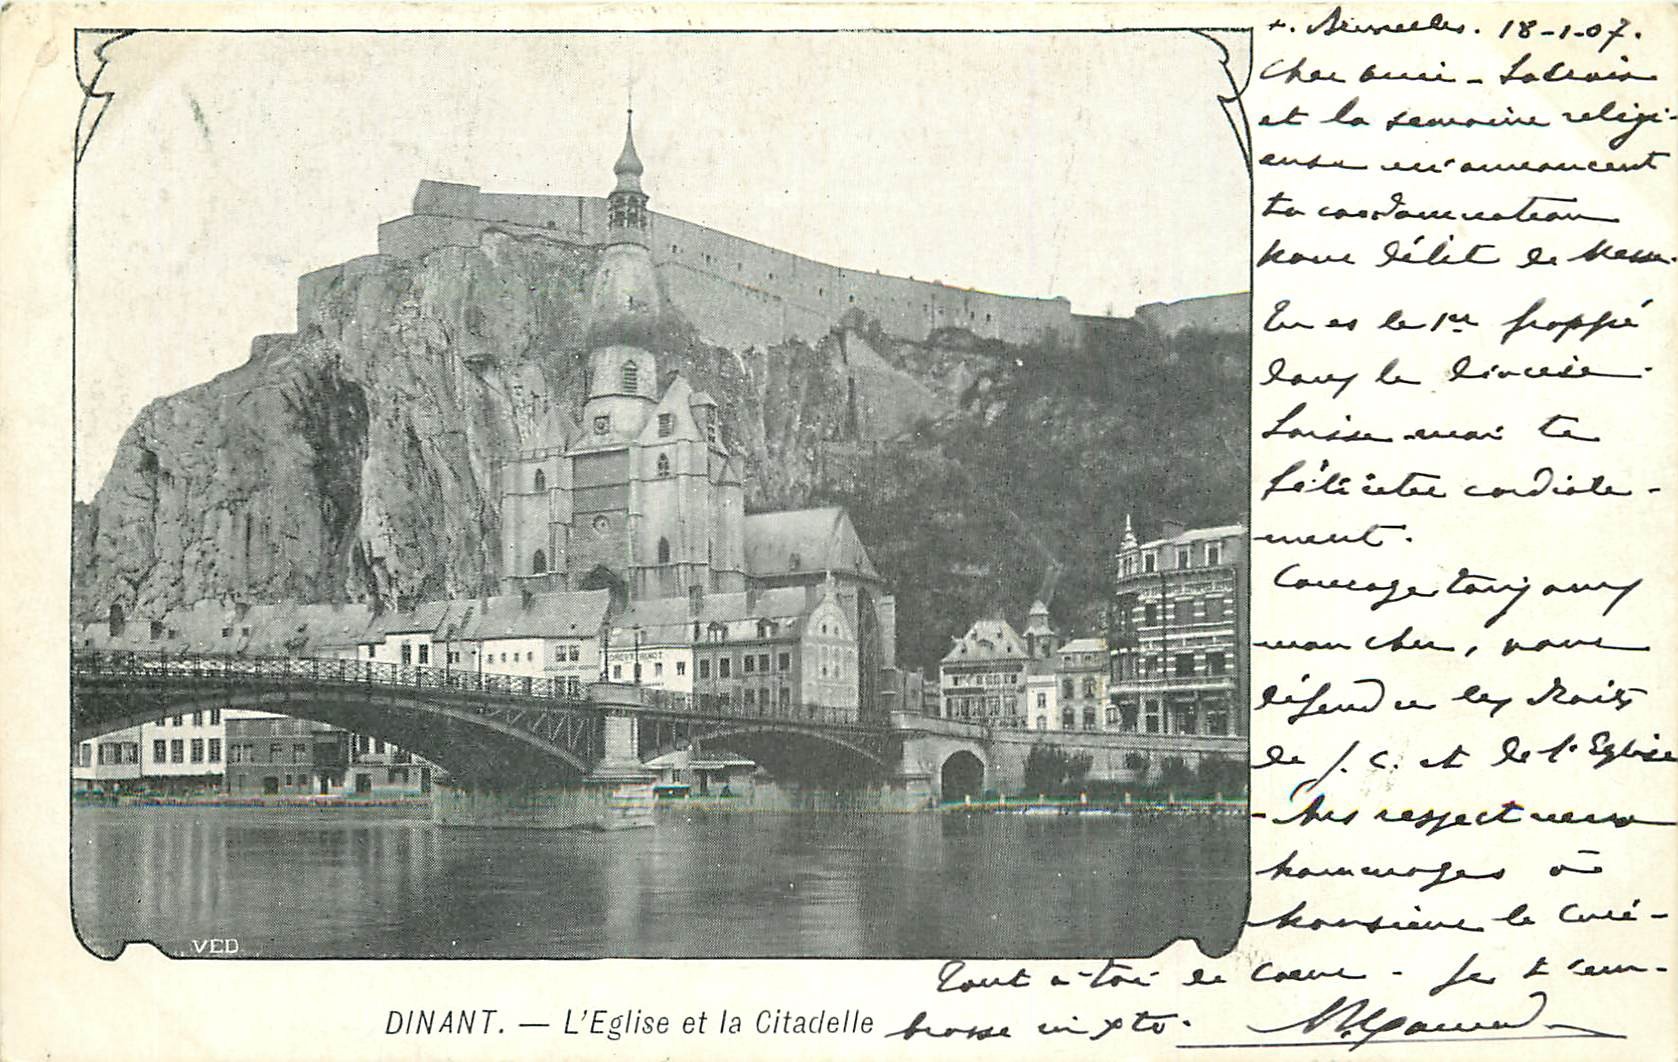 +. Bruxelles. 18-1-07.
Cher ami - La Croix
et la semaine religi-
euse m'annoncent
ta condamnation
pour délit de Messe.
Tu es le 1er frappé
dans le diocèse.
Laisse-moi te
féliciter cordiale-
ment.
Courage toujours
mon cher, pour
défendre les droits
de J. C. et de l'Eglise
- Mes respectueux
hommages à
Monsieur le Curé -
Tout à toi de coeur - Je t'em-
brasse in Xto.
VED
DINANT. — L'Eglise et la Citadelle